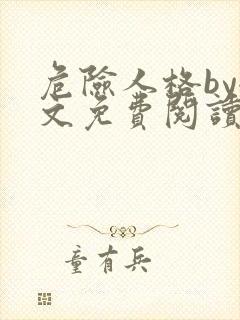 危險人格by
文免費閱讀
童有兵